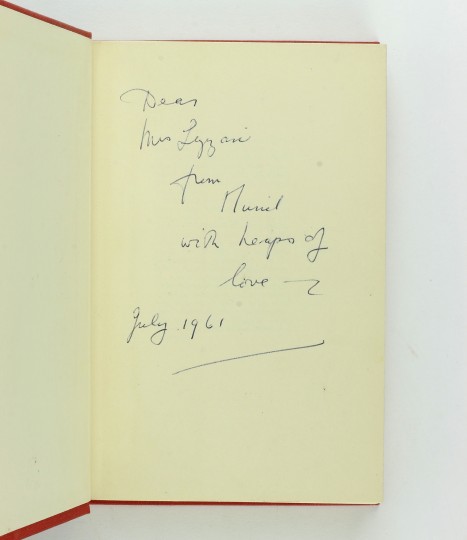 Dear
Mrs Lezzari
from
Muriel
with heaps of
love —
July 1961